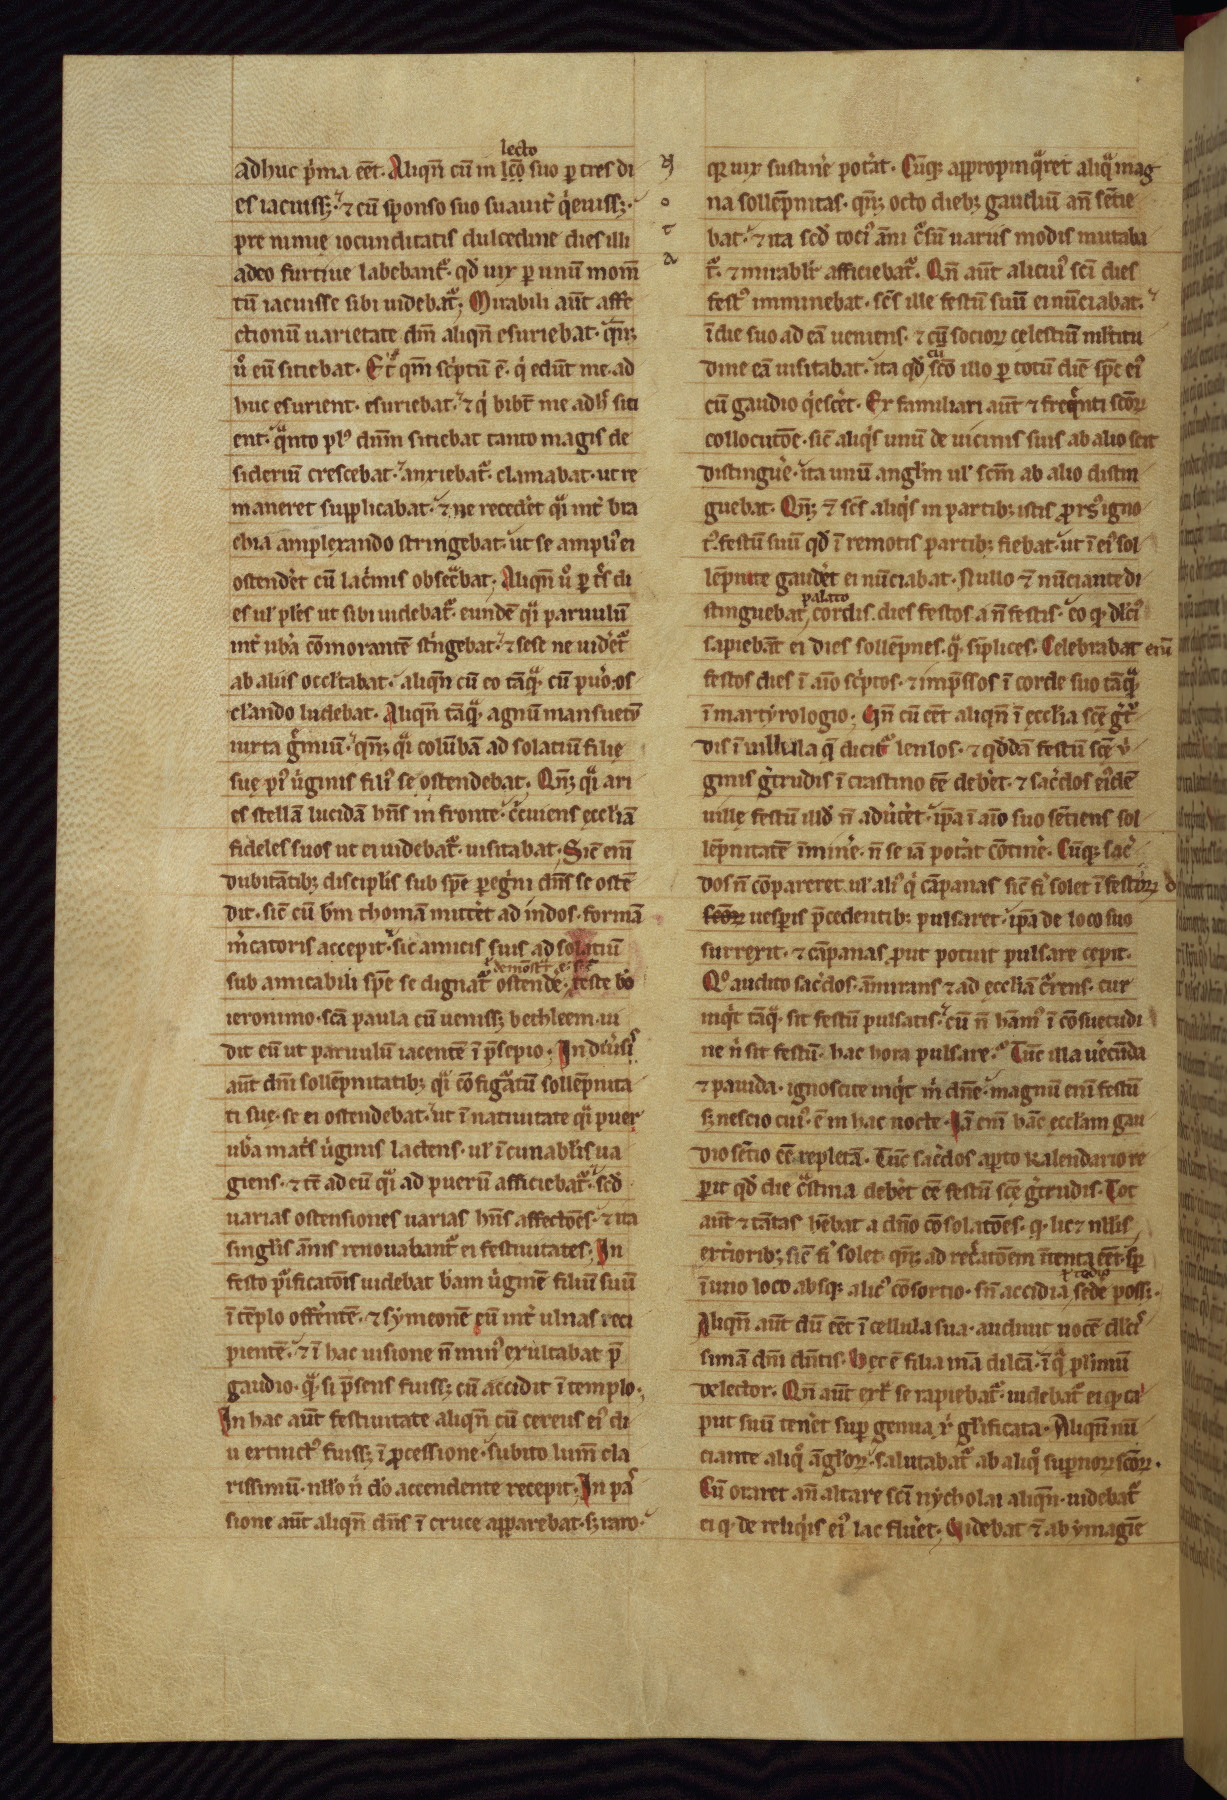 lecto
adhuc p̄ma eēt. Aliqn̄ cū in lco suo p tres di
es iacuiss; & cū sponso suo suauit̄ q̄euiss;.
pre nimię iocunditatis dulcedine dies illi
adeo furtiue labebant̄. qd̄ uix p unū mom̄
tū iacuisse sibi uidebat̄; Mirabili aūt affe
ctionū uarietate dn̄m aliqn̄ esuriebat. qn̄q;
ū eū sitiebat. Et̄ qm̄ sc̄ptū ē. q̄ edūt me. ad
huc esurient. esuriebat. & q̄ bibt̄ me adh̄ siti
ent. q̄nto pl̄ dn̄m sitiebat tanto magis de
sideriū crescebat. anxiebat̄. clamabat. ut re
maneret supplicabat. & ne recedet̄ q̄i int̄ bra
chia amplexando stringebat. ut se ampl̄i ei
ostendet̄ cū lac̄mis obsec̄bat; Aliqn̄ ū p t̄s di
es ul̄ ples ut sibi uidebat̄. eundē q̄i paruulū
int̄ ub̄a cōmorantē st̄ngebat. & sese ne uidet̄
ab aliis occl̄tabat. aliqn̄ cū eo tāq̄. cū puo. os
cl̄ando ludebat. Aliqn̄ tāq̄. agnū mansuetū
iuxta gm̄iū. qn̄q; q̄i colūbā ad solatiū filię
suę pi ūginis fili se ostendebat. Qn̄q; q̄i ari
es stellā lucidā hn̄s in fronte. c̄cuiens eccl̄iā
fideles suos ut ei uidebat̄. uisitabat. Sic̄ eni
dubitātib; discipl̄is sub spē pegn̄i dn̄s se ostē
dit. sic̄ cū bm̄ thomā mittet̄ ad indos. formā
m̄catoris accepit. sic amicis suis ad solatiū
sub amicabili spē se dignat̄ ostende. teste bo
ieronimo. scā paula cū uenisś bethleem. ui
dit eū ut paruulū iacentē ī p̄sepio. In diūsi
aūt dn̄i sollēpnitatib; q̄i cōfiguratū sollēpnita
ti suę. se ei ostendebat. ut ī natiuitate q̄i puer
ub̄a mat̄s ūginis lactens. ul̄ ī cunabl̄is ua
giens. & t̄c ad eū q̄i ad puerū afficiebat̄. scd̄
uarias ostensiones uarias hn̄s affectōes. & ita
singl̄is ānis renouabant̄ ei festiuitates; In
festo p̄ificatōis uidebat bām ūginē filiū suū
ī tēplo offerentē. & symeonē eū int̄ ulnas reci
pientē. & ī hac uisione n̄ min̄ exultabat p̄
gaudio. q̄. si p̄sens fuisś cū accidit ī templo.
In hac aūt festiuitate aliqn̄ cū cereus ei di
u extinct̄ fuisś ī pcessione. subito lum̄ cla
rissimū. nll̄o n̄ do accendente recepit. In pas
sione aūt aliqn̄ dn̄s ī cruce apparebat. s; raro.
N
o
t
a
q; uix sustinē potat̄. Cūq; appropinq̄ret aliq̄ mag
na sollēpnitas. qn̄q; octo dieb; gaudiū an̄ sētie
bat. & ita scd̄ toci āni c̄sū uariis modis mutaba
t̄. & mirabilr̄ afficiebat̄. Qn̄ aūt alicui sc̄i dies
fest̄ imminebat. sc̄s ille festū suū ei nūciabat.
ī die suo ad eā ueniens. & cū socior̄ celestiū mltitu
cū
dine eā uisitabat. ita qd̄ sc̄o illo p totū diē spc̄ ei
cū gaudio q̄escet̄. Ex familiari aūt & freq̄nti sc̄or̄
collocutōe. sic̄ aliq̄s unū de uicinis suis ab alio scit
distingue. ita unū angl̄m ul̄ sc̄m ab alio distin
guebat. Qn̄q; & sc̄s aliq̄s in partib; istis prs̄ igno
t̄. festū suū qd̄ ī remotis partib; fiebat. ut ī ei sol
lēpnitate gaudet̄ ei nūciabat. Nullo & nūciante di
palato
stinguebat cordis. dies festos a n̄ festis. eo q. dl̄ci
sapiebāt ei dies sollēpnes. q̄. siplices. Celebrabat eni
festos dies ī aīo sc̄ptos. & imp̄ssos ī corde suo tāq̄
ī martyrologio. Qn̄ cū eēt aliqn̄ ī eccl̄ia sc̄ę ḡt̄
dis ī uillula q̄ dicit̄ lenlos. & qd̄dā festū sc̄ę ū
ginis ḡtrudis ī crastino eē debet̄. & sac̄dos eidē
uillę festū illd̄ n̄ adūtet̄. ip̄a ī aīo suo sētiens sol
lēpnitatē īminē. n̄ se iā potat̄ cōtinē. Cūq; sac̄
dos n̄ cōpareret ul̄ ali q̄ cāpanas sic̄ fi solet ī festiu
uesperis p̄cedentib; pulsaret. ip̄a de loco suo
surrexit. & cāpanas put potuit pulsare cepit.
Qo audito sac̄dos. āmirans & ad eccl̄iā c̄rens. cur
inq̄t tāq̄. sit festū pulsatis. cū n̄ hām ī cōsuetudi
ne n̄ sit festū. hac hora pulsare. Tūc illa uecūda
& pauida. ignoscite inq̄t m̄ dn̄e. magnū enī festū
s; nescio cui. ē in hac nocte. Iā eni hāc eccl̄iam gau
dio sētio eē repletā. Tūc sac̄dos apto kalendario re
pit qd̄ die c̄stina debet̄ eē festū sc̄ę ḡtrudis. Tot
aūt & tātas hēbat a dn̄o cōsolatōes. q. lic& nllis
extiorib; sic̄ fi solet qn̄q; ad rec̄atōem intenta eēt. sp
& tedio
ī uno loco absq; alic̄ cōsortio. sn̄ accidia sedē poss;.
Aliqn̄ aūt dū eēt ī cellula sua. audiuit uocē dl̄ci
simā dn̄i dn̄tis. Hec ē filia mā dilc̄ā. ī q̄ pl̄imū
delector. Qn̄ aūt ext̄ se rapiebat̄. uidebat̄ ei q. ca
put suū tenet̄ sup genua x̄ gl̄ificata. Aliqn̄ nū
ciante aliq̄ āgl̄or̄. salutabat̄ ab aliq̄ supnor̄ sc̄or̄.
Cū oraret an̄ altare sc̄i nycholai aliqn̄. uidebat̄
ei q. de reliq̄is ei lac fluet̄; Uidebat & ab ymagīe